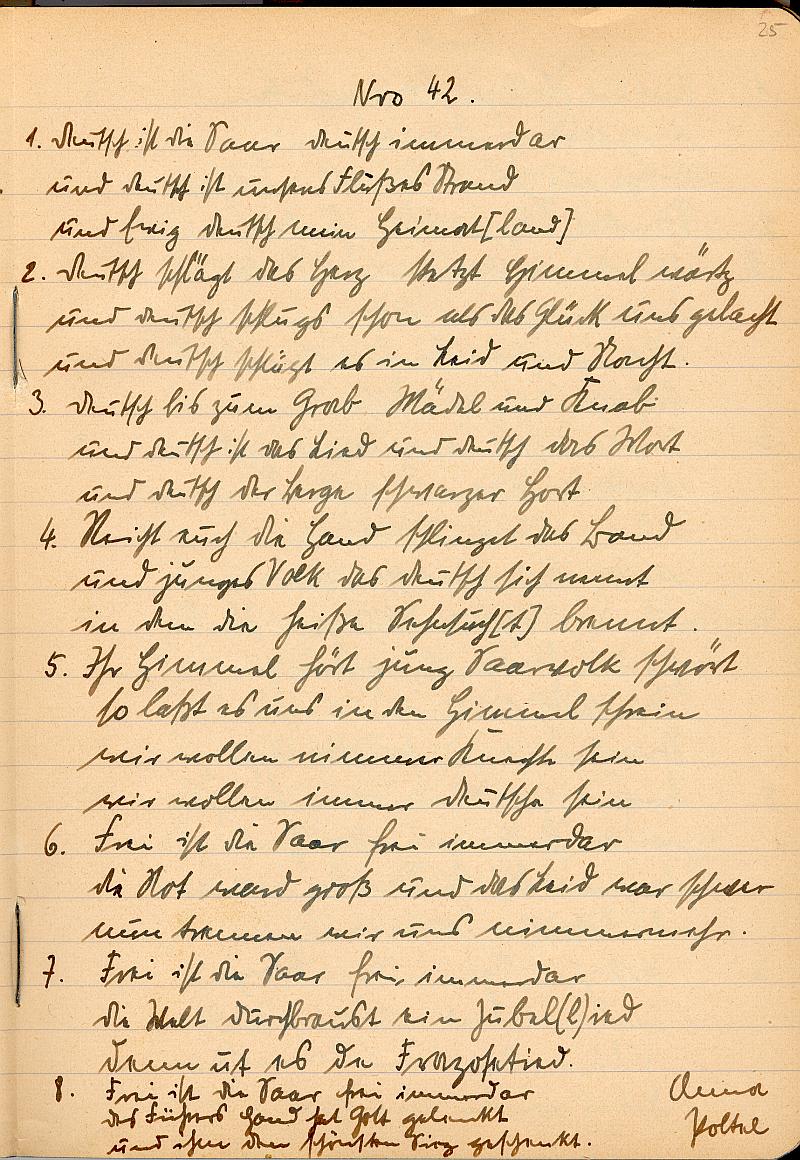 25
Nro 42.
1. Deutsch ist die Saar deutsch immerdar
und deutsch ist unseres Flußes Strand
und Ewig deutsch mein Heimat[land]
2. Deutsch schlägt das Herz stetzt Himmel wärtz
und deutsch schlugs schon als das Glück uns gelacht
und deutsch schlägt es in Leid und Nacht.
3. Deutsch bis zum Grab Mädel und Knab
und deutsch ist das Lied und deutsch das Wort
und deutsch der Berge schwarzer Hort
4. Reicht euch die Hand schlinget das Band
und junges Volk das deutsch sich nennt
in dem die heiße Sehnsuch[t] brennt.
5. Ihr Himmel hört jung Saarvolk schwört
so laßt es uns in den Himmel schrein
wir wollen nimmer Knechte sein
wir wollen immer deutsche sein
6. Frei ist die Saar frei immerdar
die Not ward groß und das Leid war schwer
nun trennen wir uns nimmermehr.
7. Frei ist die Saar frei immerdar
die Welt durchbraust ein Jubel(l)ied
denn es die
8. Frei ist die Saar frei immerdar
des Führers Hand hat Gott gelenkt
und ihm den schönsten Sieg geschenkt.
Anna